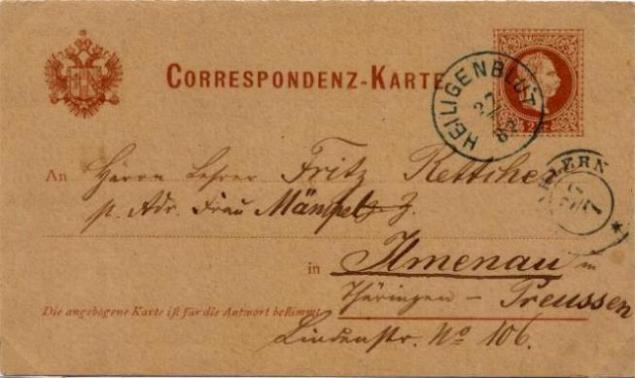 CORRESPONDENZ-KARTE
HEILIGENBLUT
27
82
2 kr
An Herrn Lehrer Fritz Rettche
p. Adr. Frau Mämpel
in Ilmenau in
Thüringen – Preussen
Die angebogene Karte iſt für die Antwort beſtimmt
Lindenstr. No 106.